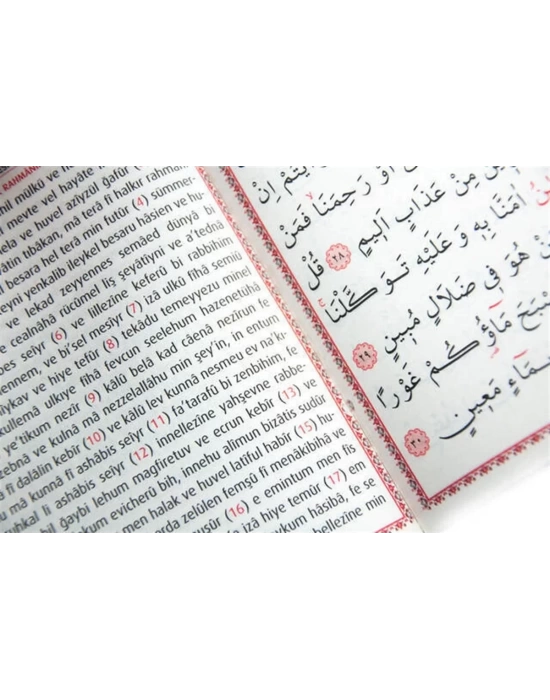 RAHMANI
mil mülkü ve h
meyte vel hayate
ela ve huvel azîyzül ğafûr (2)
vâtin tıbâkan, mâ terâ fî halkır rahmanı
l besara hel terâ min futûr (4) sümmer-
teyni yenkalib ileykel besaru hâsien ve hu-
ve lekad zeyyennes semâed dünyâ bi
e cealnâhâ rücümel liş şeyâtıyni ve a'tednâ
bes seıyr (6) ve lillezîne keferû bi rabbihim
ennem, ve bi'sel mesıyr (7) izâ ulkû fîhâ semiû
hıykav ve hiye tefûr (8) tekâdu temeyyezu minel
küllemâ ulkıye fîhâ fevcun seelehum hazenetühâ
m ye'tikum nezîr (9) kâlû belâ kad câenâ nezîrun fe
zzebnâ ve kulnâ mâ nezzelallâhu min şey'in, in entum
â fî dalâlin kebîr (10) ve kâlû lev kunnâ nesmeu ev na'kı-
mâ kunnâ fî ashâbis seıyr (11) fa'tarafû bi zenbihim, fe
uhkal li ashâbis seıyr (12) innellezîne yahşevne rabbe-
bil ğaybi lehum mağfiretuv ve ecrun kebîr (13) ve
kum evicherû bih, innehu alîmun bizâtis sudûr
men halak ve huvel latîful habîr (15) hu-
arda zelûlen femşû fî menâkibihâ ve
nuşûr (16) e emintum men fis
e izâ hiye temûr (17) em
aykum hâsıbâ, fe se
bellezîne min
اَوْ رَحِمَنَا فَمَنْ
مِنْ عَذَابٍ اَلِيمٍ ٢٨ قُلْ
اٰمَنَّا بِهِ وَعَلَيْهِ تَوَكَّلْنَا
هُوَ فِي ضَلَالٍ مُبِينٍ ٢٩
مَاؤُكُمْ غَوْرًا
مَعِينٍ ٣٠